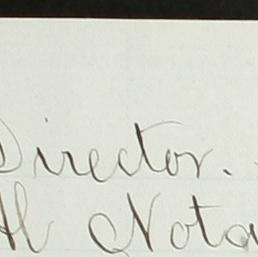 Director.
Nota